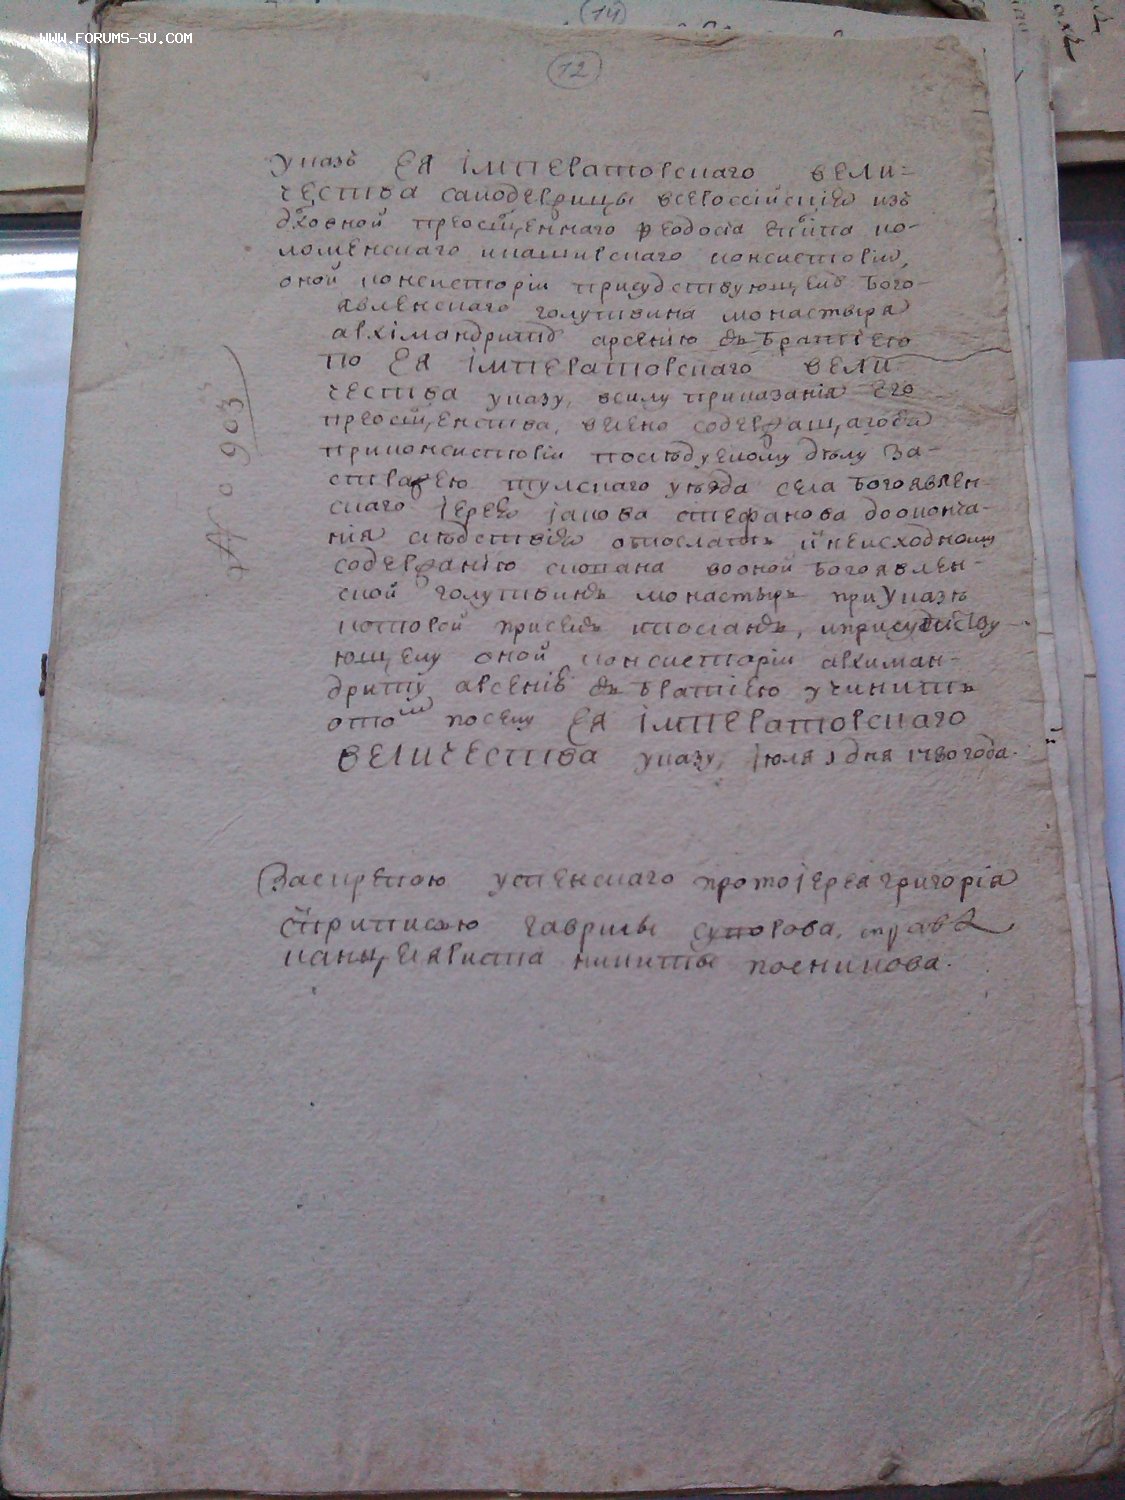 WWW.FORUMS-SU.COM
(14)
(12)
указъ ЕЯ ІМПЕРАТОРСкаго ВЕЛИ-
ЧЕСТВА самодержицы всероссійскія изъ
дховной преосщеннаго Феодосіа епкпа ко-
ломенскаго икаширскаго консисторіи,
оной консисторіи присудствующему Бого-
явленскаго голутвина монастыря
архімандриту арсению зъ братіею
по ЕЯ ІМПЕРАТОРСкаго ВЕЛИ-
ЧЕСТВА указу, всилу приказанія Его
преосщенства, велено содержащагося
приконсисторіи послѣдуемому дѣлу За-
стражею тулскаго уѣзда села Богоявлен-
скаго Іерея іакова стефанова дооконча-
нія слѣдствія отослать кнеисходному
содержанію скована вооной Богоявлен-
ской голутвинъ монастырь приУказѣ
которой присемъ ипосланъ, иприсудству-
ющему оной консисторіи архиман-
дриту арсению зъ братіею учинить
отом посему ЕЯ ІМПЕРАТОРСкаго
ВЕЛИЧЕСТВА указу, Іюля 1 дня 1780 года.
№ 903
Заскрепою успенскаго протоіерея григоріа
сприписью гаврилы
канцеляриста никиты посникова.